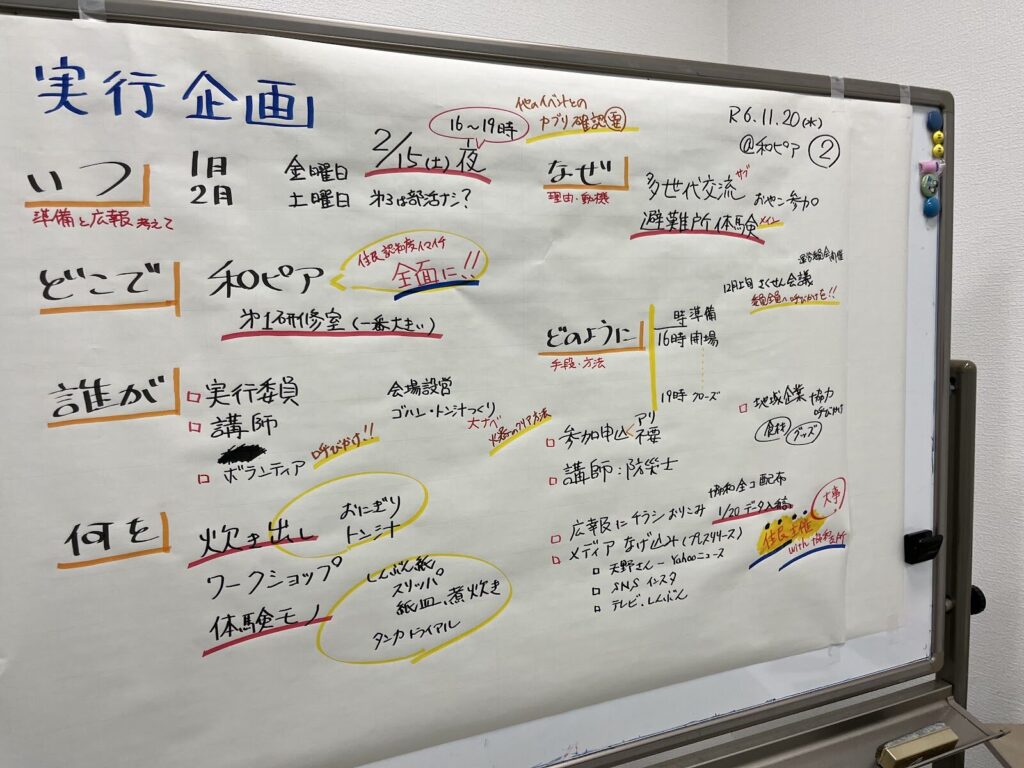 実行企画
R6.11.20(水)
@和ピア ②
いつ
準備と広報考えて
1月
2月
金曜日
土曜日
2/15(土)夜
16〜19時
第3は部活ナシ?
他のイベントとの
カブリ確認
なぜ
理由・動機
多世代交流 サブ
おやこ参加
避難所体験 メイン
どこで
和ピア
住民認知度イマイチ
全面に!!
第1研修室(一番大きい)
どのように
手段・方法
時 準備
16時 開場
19時 クローズ
12月上旬 さくせん会議
誰が
□実行委員
□講師
□ボランティア
呼びかけ!!
会場設営
ゴハン・トン汁つくり
大ナベ
□参加申込 アリ
不要
□講師:防災士
□地域企業 協力
呼びかけ
食材
グッズ
何を
炊き出し
おにぎり
トン汁
ワークショップ
体験モノ
しんぶん紙
スリッパ
紙皿、煮炊き
タンカ トライアル
□広報にチラシおりこみ
協和全コ配布
1/20 データ入稿
大事!
□メディア なげ込み(プレスリリース)
□天野さん - Yahooニュース
□SNS インスタ
□テレビ、しんぶん
住民主催
with 協和支所